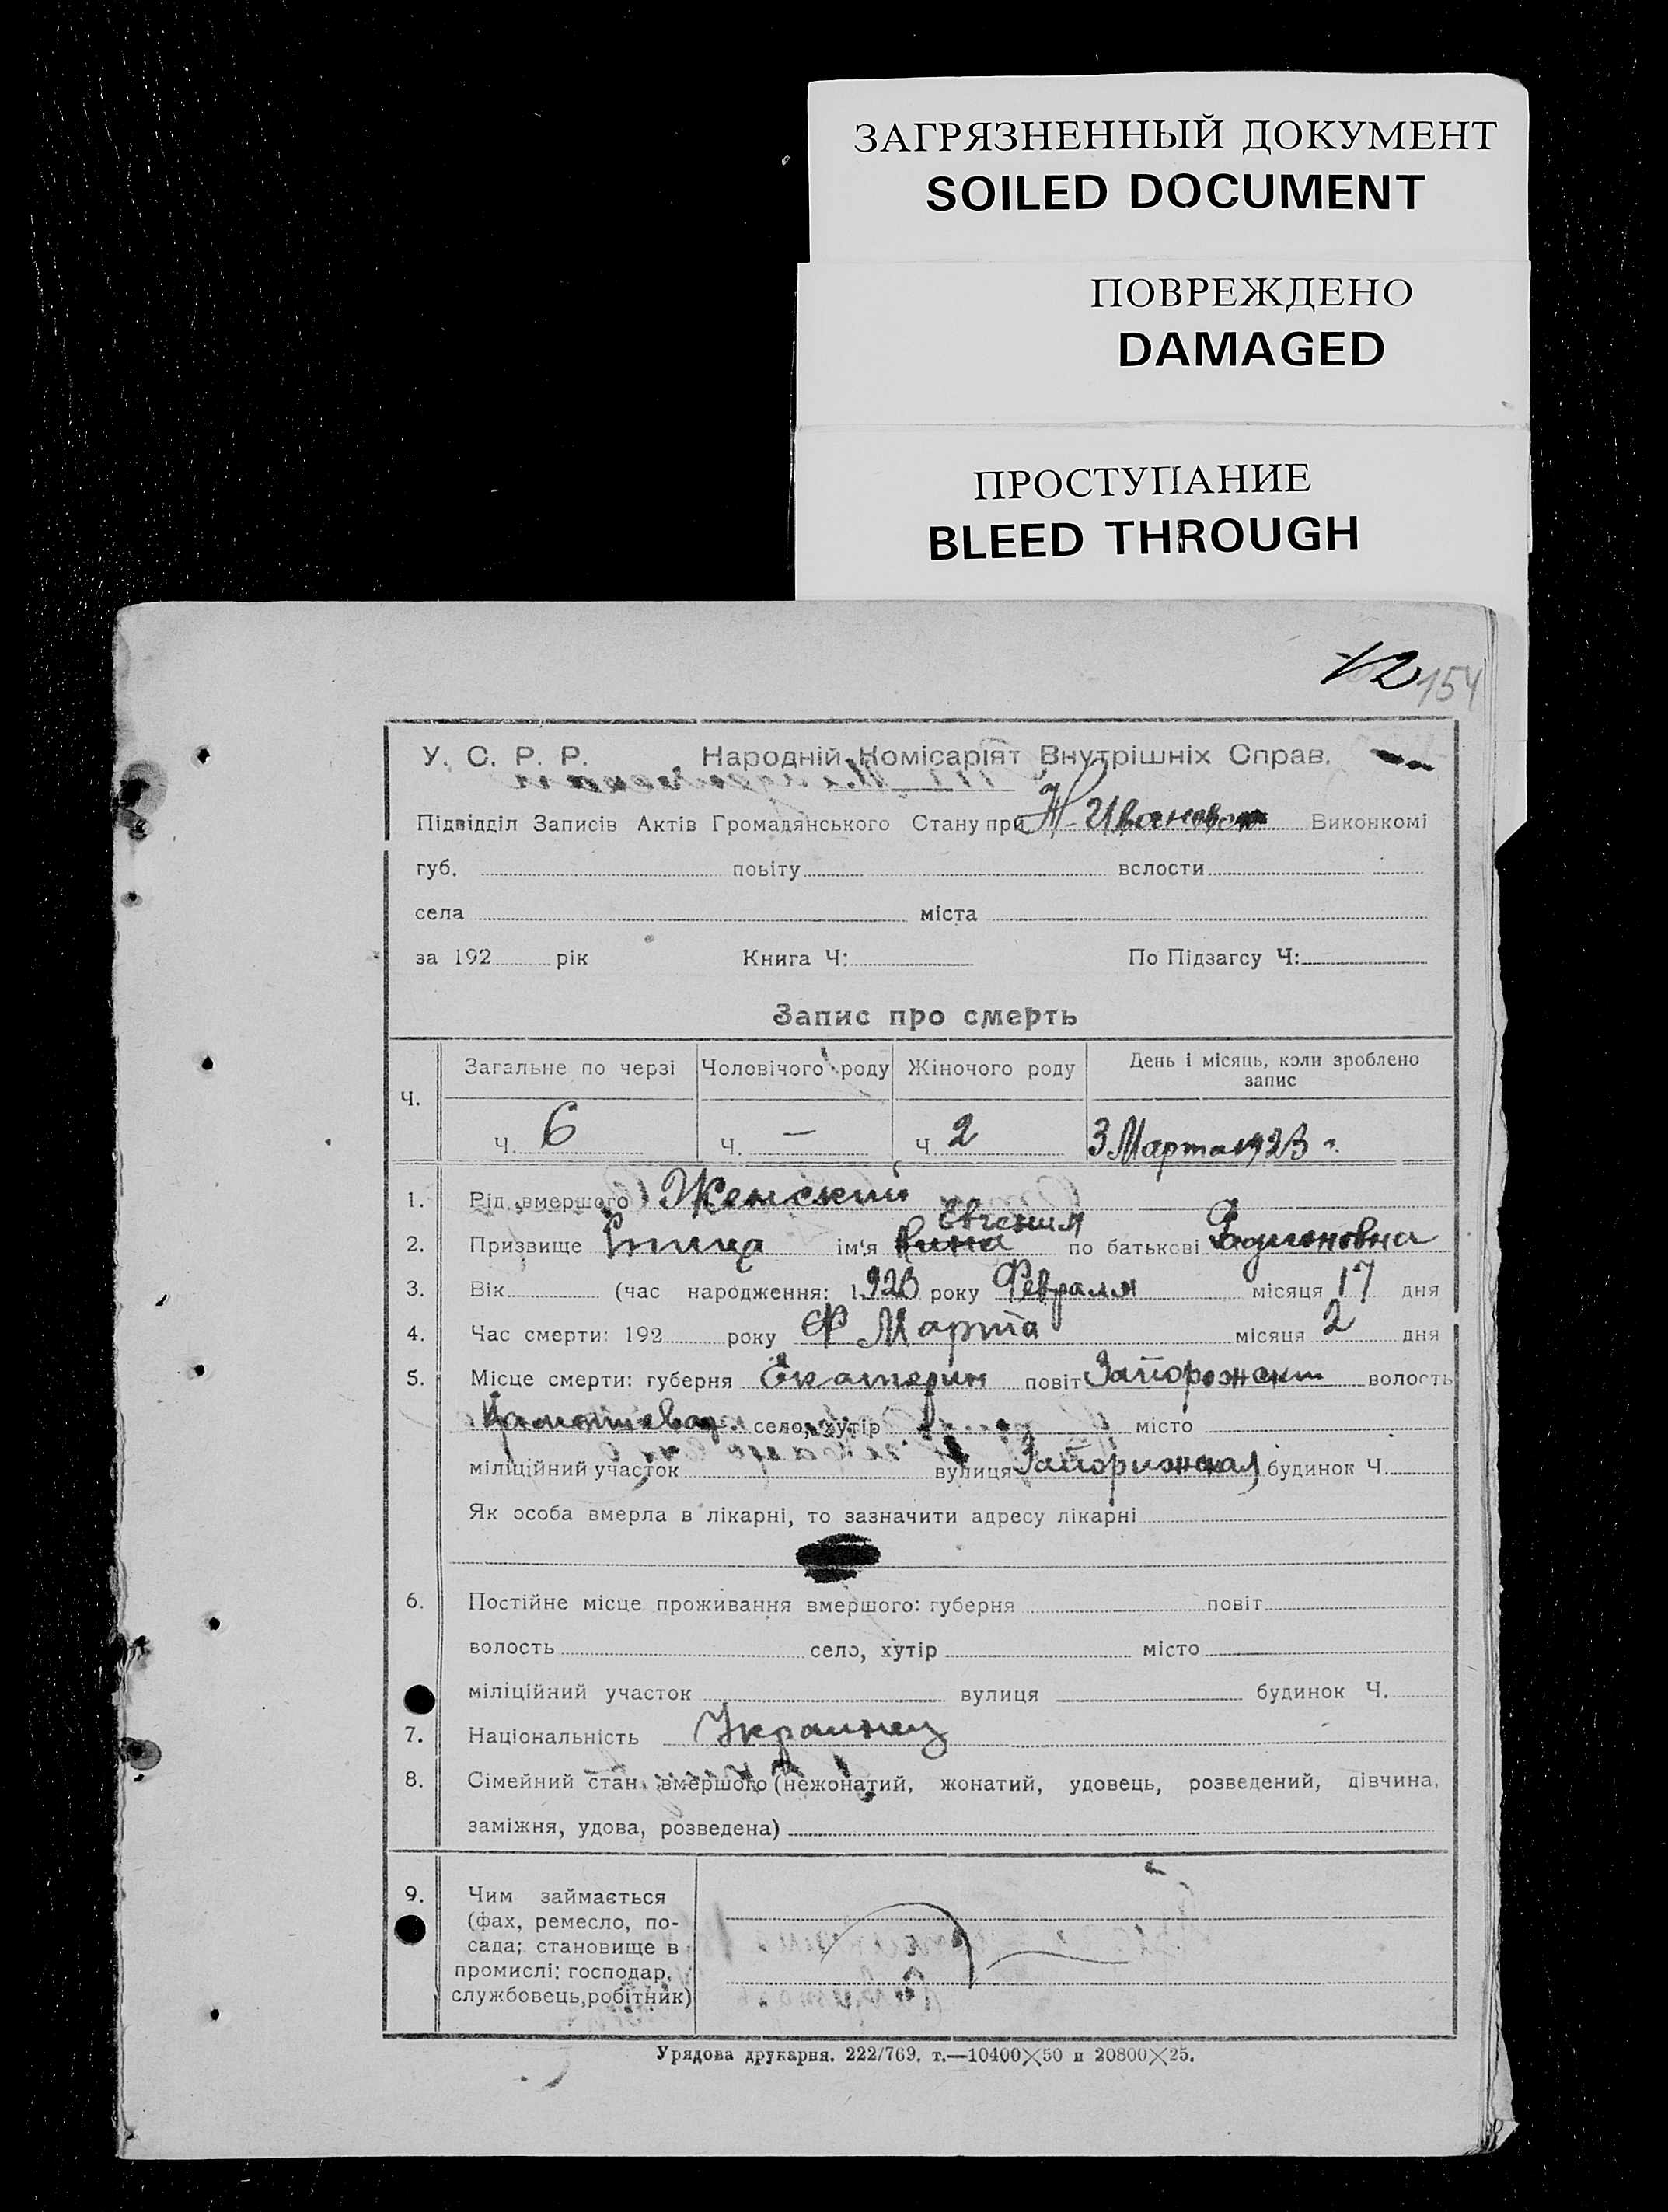 ЗАГРЯЗНЕННЫЙ ДОКУМЕНТ
SOILED DOCUMENT
ПОВРЕЖДЕНО
DAMAGED
ПРОСТУПАНИЕ
BLEED THROUGH
12 154
У. С. Р. Р. Народній Комісаріят Внутрішніх Справ.
Підвідділ Записів Актів Громадянського Стану при Виконкомі
губ. повіту волости
села міста
за 192 рік Книга Ч: По Підзагсу Ч:
Запис про смерть
Ч. Загальне по черзі Чоловічого роду Жіночого роду День і місяць, коли зроблено запис
Ч. 6 Ч. — Ч. 2 3 Марта 1923 г.
1. Рід вмершого Женский
2. Призвище ім'я Нина Евгения по батькові Родионовна
3. Вік (час народження: 1923 року Февраля місяця 17 дня
4. Час смерти: 192 року Марта місяця 2 дня
5. Місце смерти: губерня Екатерин повіт Запорожск волость
село, хутір місто
міліційний участок вулиця Запорижская будинок Ч.
Як особа вмерла в лікарні, то зазначити адресу лікарні
6. Постійне місце проживання вмершого: губерня повіт
волость село, хутір місто
міліційний участок вулиця будинок Ч.
7. Національність Украинец
8. Сімейний стан вмершого (нежонатий, жонатий, удовець, розведений, дівчина,
заміжня, удова, розведена)
9. Чим займається
(фах, ремесло, по-
сада; становище в
промислі: господар,
службовець, робітник)
Урядова друкарня. 222/769. т.—10400×50 и 20800×25.